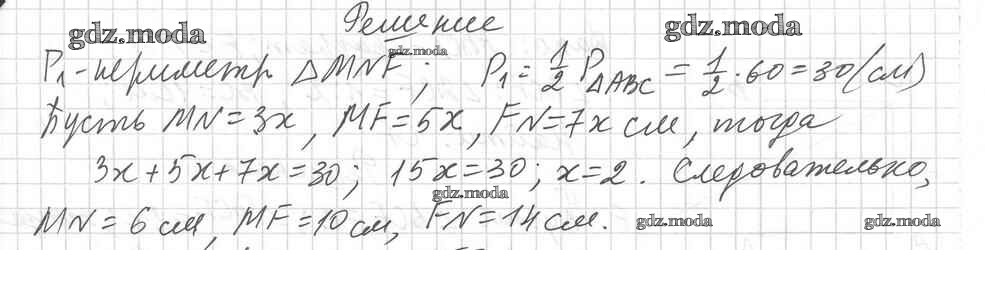 Решение
gdz.moda gdz.moda gdz.moda
P₁-периметр △MNF; P₁ = 1/2 P△ABC = 1/2 · 60 = 30 (см)
Пусть MN = 3x, MF = 5x, FN = 7x см, тогда
3x + 5x + 7x = 30; 15x = 30; x = 2. Следовательно,
gdz.moda
MN = 6 см, MF = 10 см, FN = 14 см.
gdz.moda gdz.moda